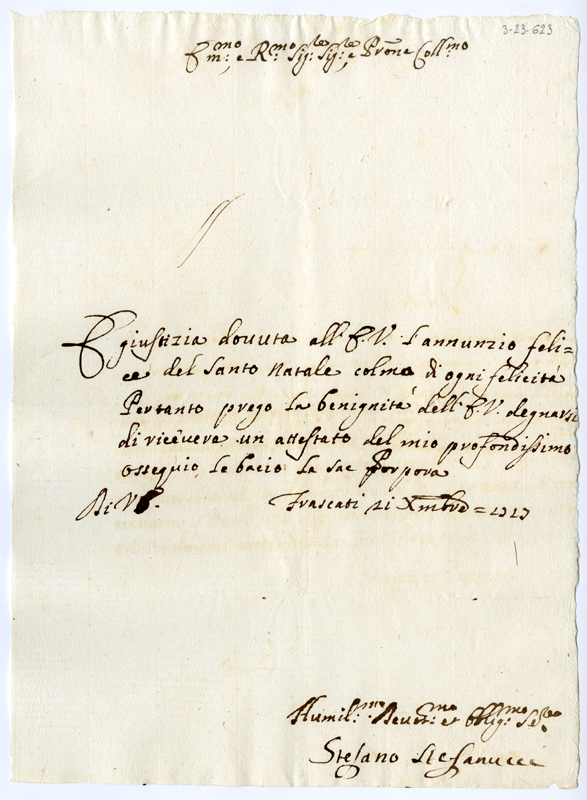 3-23-623
Em:mo e R:mo Sig:re Sig:re e Prōne Coll:mo
E giustizia douuta all' E.V. l'annunzio feli=
ce del Santo Natale colmo di ogni felicità
Pertanto prego la benignità dell' E.V. degnarsi
di riceuere un attestato del mio profondissimo
ossequio, le bacio la sac Porpora
Di V.E. Frascati 21 Xmbre =
Humil:mo Deuot:mo et Obblig:mo Se:re
Stefano Stefanucci